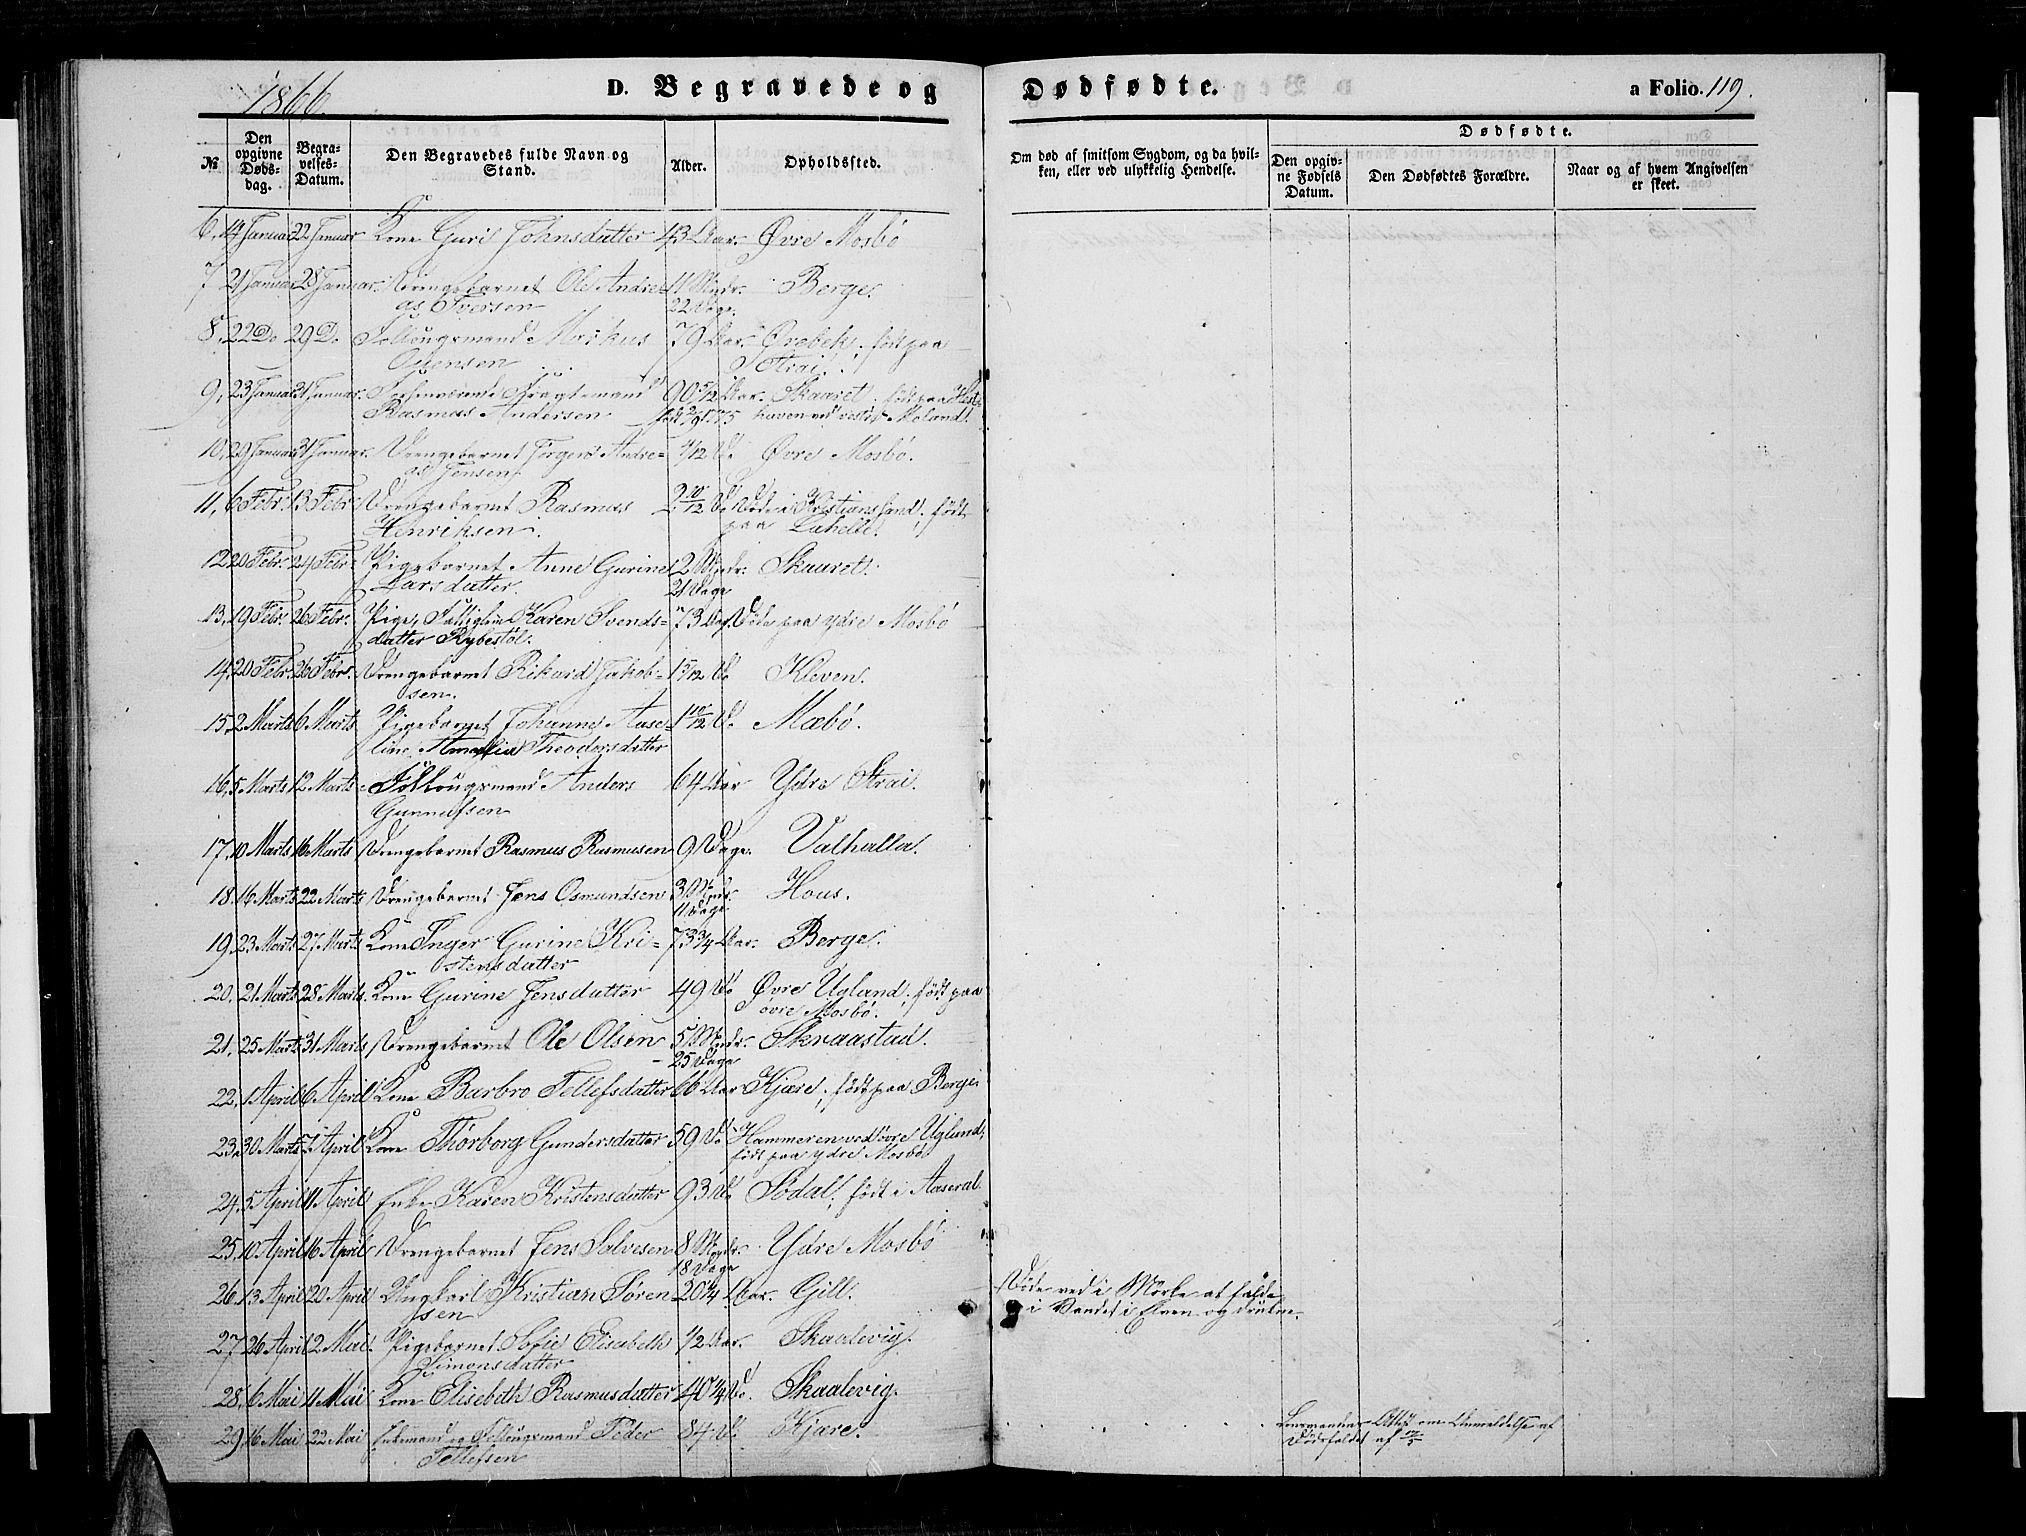 1866.
D. Begravede og
Dødfødte.
a Folio. 119.
№
Den opgivne Dødsdag.
Begravelses-Datum.
Den Begravedes fulde Navn og Stand.
Alder.
Opholdssted.
Om død af smitsom Sygdom, og da hvilken, eller ved ulykkelig Hendelse.
Dødfødte.
Den opgivne Fødsels Datum.
Den Dødfødtes Forældre.
Naar og af hvem Angivelsen er skeet.
6, 14 Januar 22 Januar Kone Guri Johnsdatter 43 Aar. Øvre Mosbö
7 21 Januar 28 Januar. Drengebarnet Ole Andre- 11 Mndr. Berge.
as Iversen 22 Dage.
8, 22 Do 29 Do Folkougsmand Markus 79 Aar. Ørebek, födt paa
Strai.
9, 23 Januar 31 Januar. Andersen 90 5/12 Aar. Skaaret. födt paa
Rasmus Andersen födt 2/9 1775 haven ved vestre Moland.
10, 29 Januar 31 Januar. Drengebarnet Jörgen Andre- Do Øvre Mosbö.
as Jensen
11, 6 Febr. 13 Febr Drengebarnet Rasmus 2 10/12 Do Döde i Kristianssand, födt
Henriksen. paa Lahelle.
12, 20 Febr. 24 Febr. Pigebarnet Anne Gurine 2 Mndr. Skaaret.
Larsdatter. 21 Dage
13, 19 Febr. 26 Febr. Pige, Fattiglem Karen Svends- 73 Aar. Döde paa ydre Mosbö
datter Rybestöl.
14, 20 Febr. 26 Febr. Drengebarnet Rikard Jakob- Do Kleven.
sen.
15, 2 Marts 6 Marts Pigebarnet Johanne Aase- 1 10/12 Do Mæbö.
line Amalia Theodorsdatter
16, 5 Marts 12 Marts Folkougsmand Anders 64 Aar Ydre Strai.
Gunnufsen
17, 10 Marts 16 Marts Drengebarnet Rasmus Rasmusen 9 Dage. Valhalla.
18. 16 Marts 22 Marts Drengebarnet Jens Osmundsen 3 Mndr. Hous.
11 Dage
19, 23 Marts 27 Marts Kone Inger Gurine Kri- 73 3/4 Aar. Berge.
stensdatter
20. 21 Marts 28 Marts. Kone Gurine Jensdatter 49 Do Øvre Ugland, födt paa
övre Mosbö.
21, 25 Marts 31 Marts Drengebarnet Ole Olsen 5 Mndr. Skraastad.
25 Dage
22, 1 April 6 April Kone Barbro Tellefsdatter 66 Aar Kjære, födt paa Berge.
23, 30 Marts 7 April Kone Thorborg Gundersdatter 59 Do Hammeren ved övre Ugland,
födt paa ydre Mosbö
24, 5 April 11 April Enke Karen Kristensdatter 93 Do Södal, födt i Aaseral.
25, 10 April 16 April Drengebarnet Jens Salvesen 8 Mndr. Ydre Mosbö
18 Dage
26, 13 April 20 April Ungkarl Kristian Sören- 20 1/4 Aar. Gill. Döde ved i Mörke at falde
sen i Vandet i Elven og drukne.
27, 26 April 2 Mai. Pigebarnet Sofie Elisabeth 1/2 Aar. Skaalevig.
Simonsdatter
28, 6 Mai 11 Mai Kone Elisebeth Rasmusdatter 40 1/4 Do. Skaalevig.
29, 16 Mai 22 Mai Enkemand og Folkougsmand Peder 84 Do. Kjære. Lensmandens Attest om Anmeldelse af
Tellefsen Dödsfaldet af